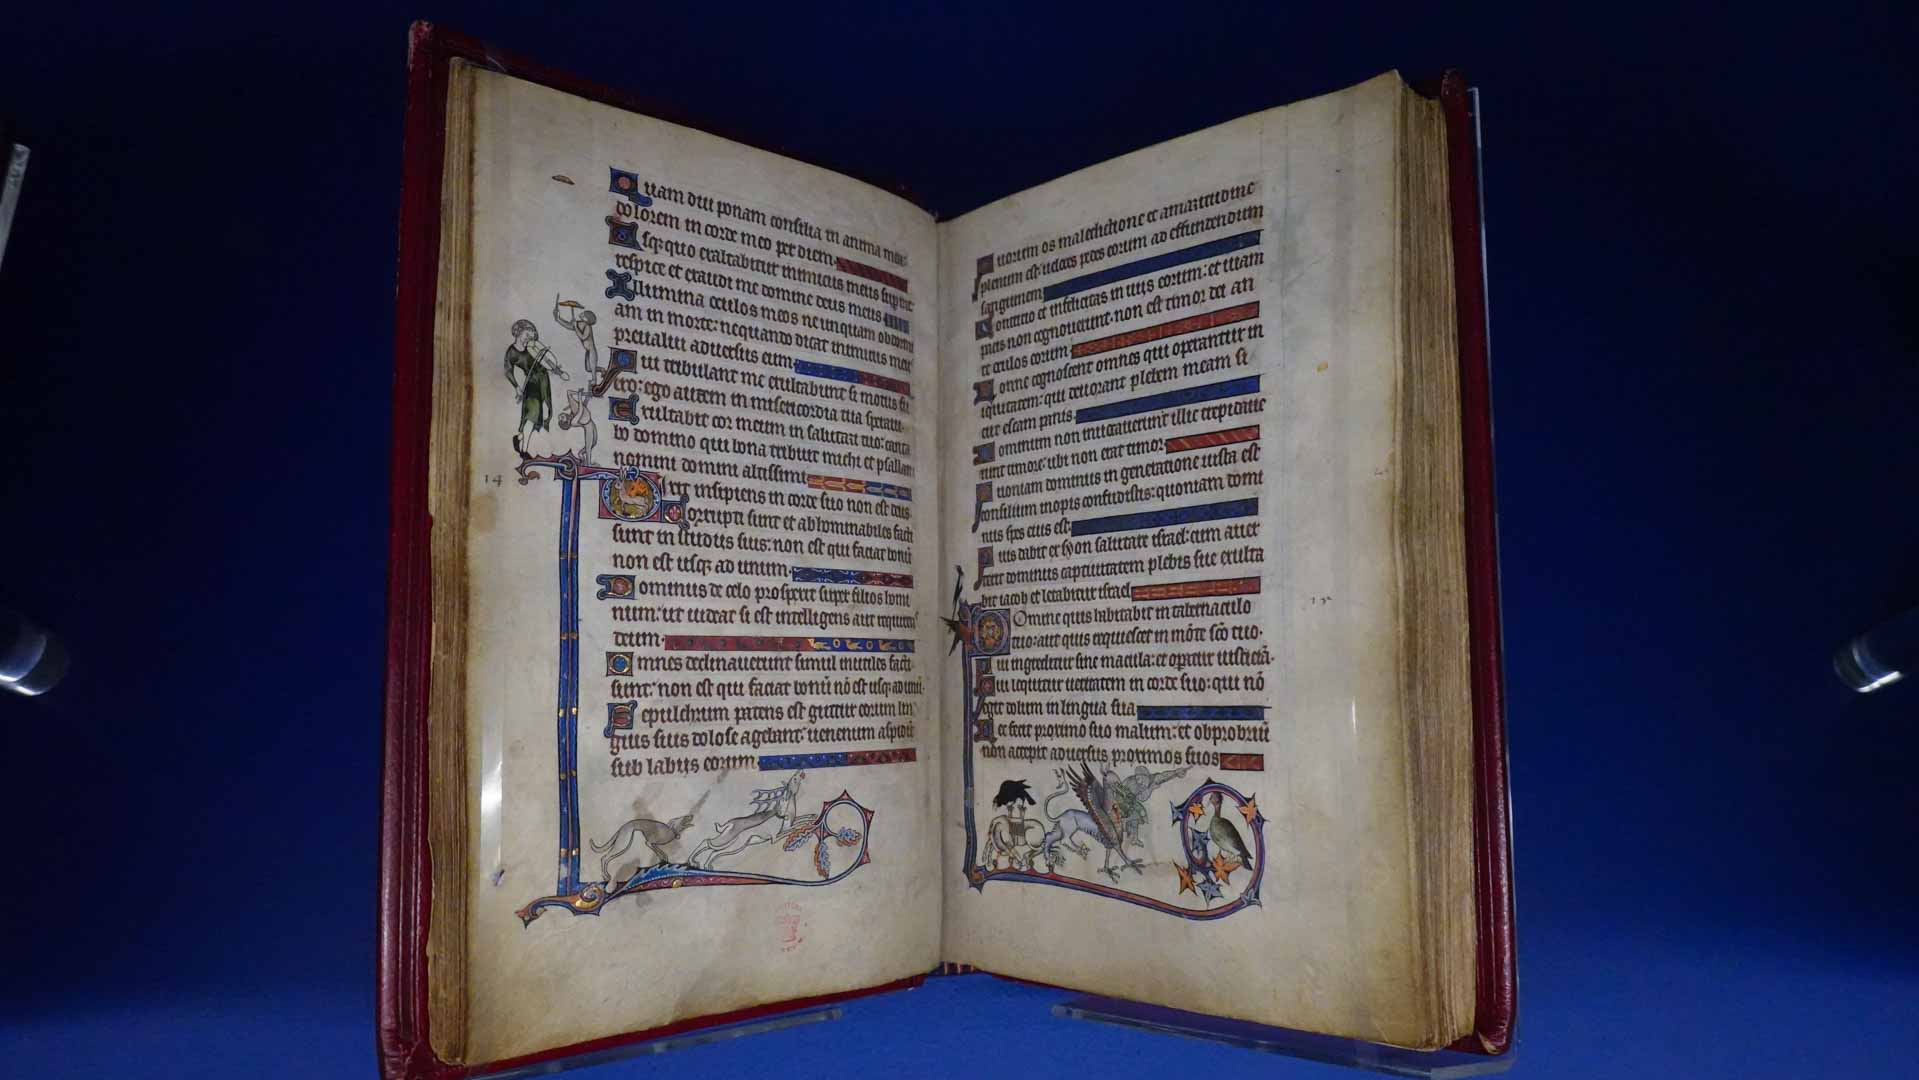 Quam diu ponam consilia in anima mea:
dolorem in corde meo per diem.
Usq; quo exaltabitur inimicus meus sup me:
respice et exaudi me domine deus meus
Illumina oculos meos ne unquam obdormi
am in morte: nequando dicat inimicus meus
preualui aduersus eum.
Qui tribulant me exultabunt si motus fu
ero: ego autem in misericordia tua speraui.
Exultabit cor meum in salutari tuo: canta
bo domino qui bona tribuit michi et psallam
nomini domini altissimi
14
Dixit insipiens in corde suo non est deus
Corrupti sunt et abhominabiles facti
sunt in studiis suis: non est qui faciat bonū
non est usq; ad unum.
Dominus de celo prospexit super filios homi
num: ut uideat si est intelligens aut requirens
deum.
Omnes declinauerunt simul inutiles facti
sunt: non est qui faciat bonū nō est usq; ad unū.
Sepulchrum patens est guttur eorum lin
guis suis dolose agebant: uenenum aspidū
sub labiis eorum.
Quorum os maledictione et amaritudine
plenum est: ueloces pedes eorum ad effundendum
sanguinem
Contritio et infelicitas in uiis eorum: et uiam
pacis non cognouerunt. non est timor dei an
te oculos eorum
Nonne cognoscent omnes qui operantur in
iquitatem: qui deuorant plebem meam si
cut escam panis.
Dominum non inuocauerunt illic trepidaue
runt timore: ubi non erat timor.
Quoniam dominus in generatione iusta est
consilium inopis confudistis: quoniam domi
nus spes eius est.
Quis dabit ex syon salutare israel: cum auer
terit dominus captiuitatem plebis sue exulta
bit iacob et letabitur israel
Domine quis habitabit in tabernaculo
tuo: aut quis requiescet in mōte scō tuo.
Qui ingreditur sine macula: et operatur iusticiā.
Qui loquitur ueritatem in corde suo: qui nō
egit dolum in lingua sua
Nec fecit proximo suo malum: et obprobriū
non accepit aduersus proximos suos